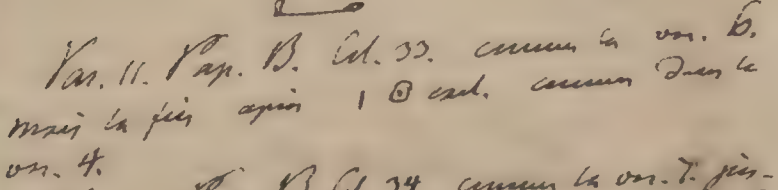 Var. 11. Pap. B. Col. 33. comme la var. 6.
mais la fin après comme dans la
var. 4.
B. Col. 34 comme la var. 7. jus-